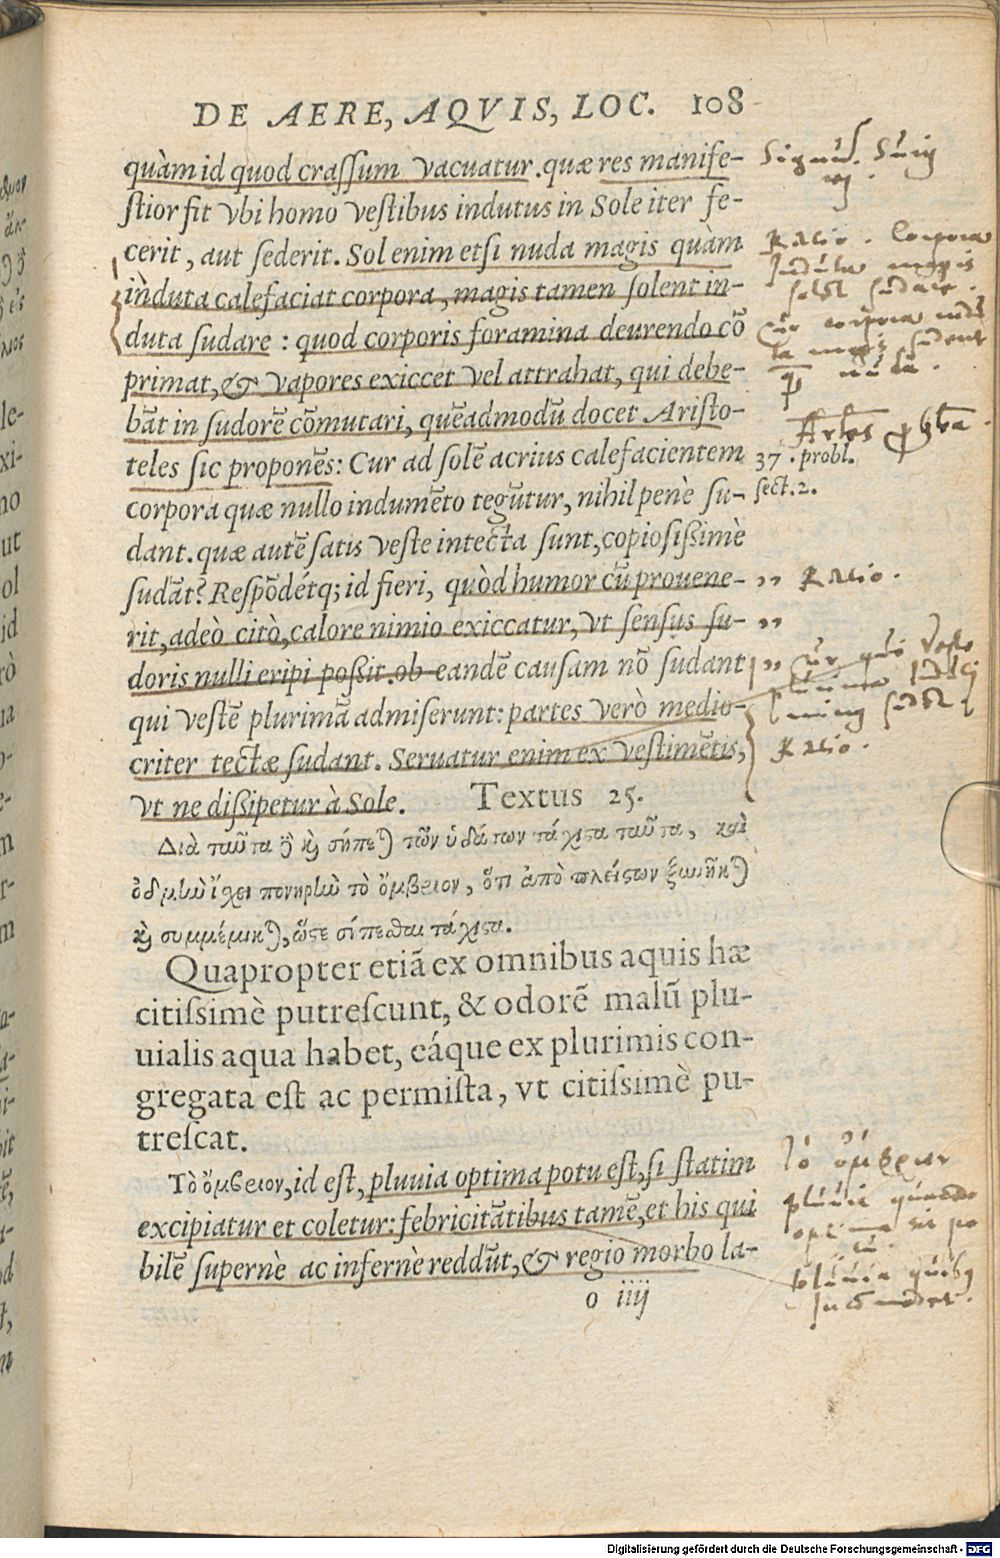 DE AERE, AQVIS, LOC. 108
quàm id quod crassum vacuatur. quæ res manife-
stior fit vbi homo vestibus indutus in Sole iter fe-
cerit, aut sederit. Sol enim etsi nuda magis quàm
induta calefaciat corpora, magis tamen solent in-
duta sudare: quod corporis foramina deurendo cō
primat, & vapores exiccet vel attrahat, qui debe-
bāt in sudorē cōmutari, quēadmodū docet Aristo-
teles sic proponēs: Cur ad solē acrius calefacientem
corpora quæ nullo indumēto tegūtur, nihil penè su-
dant. quæ autē satis veste intecta sunt, copiosißimè
sudāt? Respōdétq; id fieri, quòd humor cū prouene-
rit, adeò citò, calore nimio exiccatur, vt sensus su-
doris nulli eripi poßit. ob eandē causam nō sudant
qui vestē plurimā admiserunt: partes verò medio-
criter tectæ sudant. Seruatur enim ex vestimētis,
vt ne dißipetur à Sole.
Textus 25.
Διὰ ταῦτα ϗ σήπε) τῶν ὑδάτων τάχιστα ταῦτα, καὶ
ὀδμὴν ἴσχει πονηρὴν τὸ ὄμβριον, ὅτι ἀπὸ πλείστων ξυνῆκ)
ϗ συμμέμικ), ὥστε σήπεσθαι τάχιστα.
Quapropter etiā ex omnibus aquis hæ
citissimè putrescunt, & odorē malū plu-
uialis aqua habet, eáque ex plurimis con-
gregata est ac permista, vt citissimè pu-
trescat.
Τὸ ὄμβριον, id est, pluuia optima potu est, si statim
excipiatur et coletur: febricitātibus tamē, et his qui
bilē supernè ac infernè reddūt, & regio morbo la-
o iiij
37. probl.
sect. 2.
,, Ratio.
,,
,,
Ratio. Corpora
induta magis
Ratio.
Τὸ ὄμβριον
pluuia quando
optima sit po
tu.
pluuia quibus
Digitalisierung gefördert durch die Deutsche Forschungsgemeinschaft - DFG